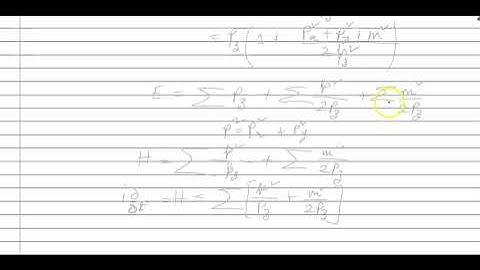 = P_z ( 1 + (P_x² + P_y² + m²) / 2P_z² )
E = ∑ P_z + ∑ p² / 2P_z + ∑ m² / 2P_z
p² = P_x² + P_y²
H = ∑ p² / P_z + ∑ m² / 2P_z
i ∂/∂t = H = ∑ [ p² / P_z + m² / 2P_z ]